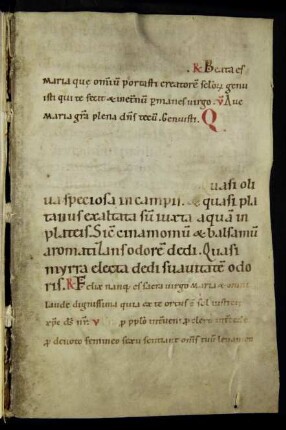 R Beata es
maria que omiū portasti creatorē sclor̄ genu
isti qui te fecit & in etnū p̄manes virgo. V Aue
maria gr̄a plena dn̄s tecū. Genuisti. Q
uasi oli
ua speciosa in campis. & quasi pla
tanus exaltata sū iuxta aquā in
plateis. Sic cinamomū & balsamū
aromatizans odorē dedi. Quasi
myrra electa dedi suauitatē odo
ris. R Felix nanq es sacra uirgo maria & omni
laude dignissima quia ex te ortus ē sol iustitie
V p pplo p clero
p deuoto femineo sexu sentiant om̄s tuū leuamen